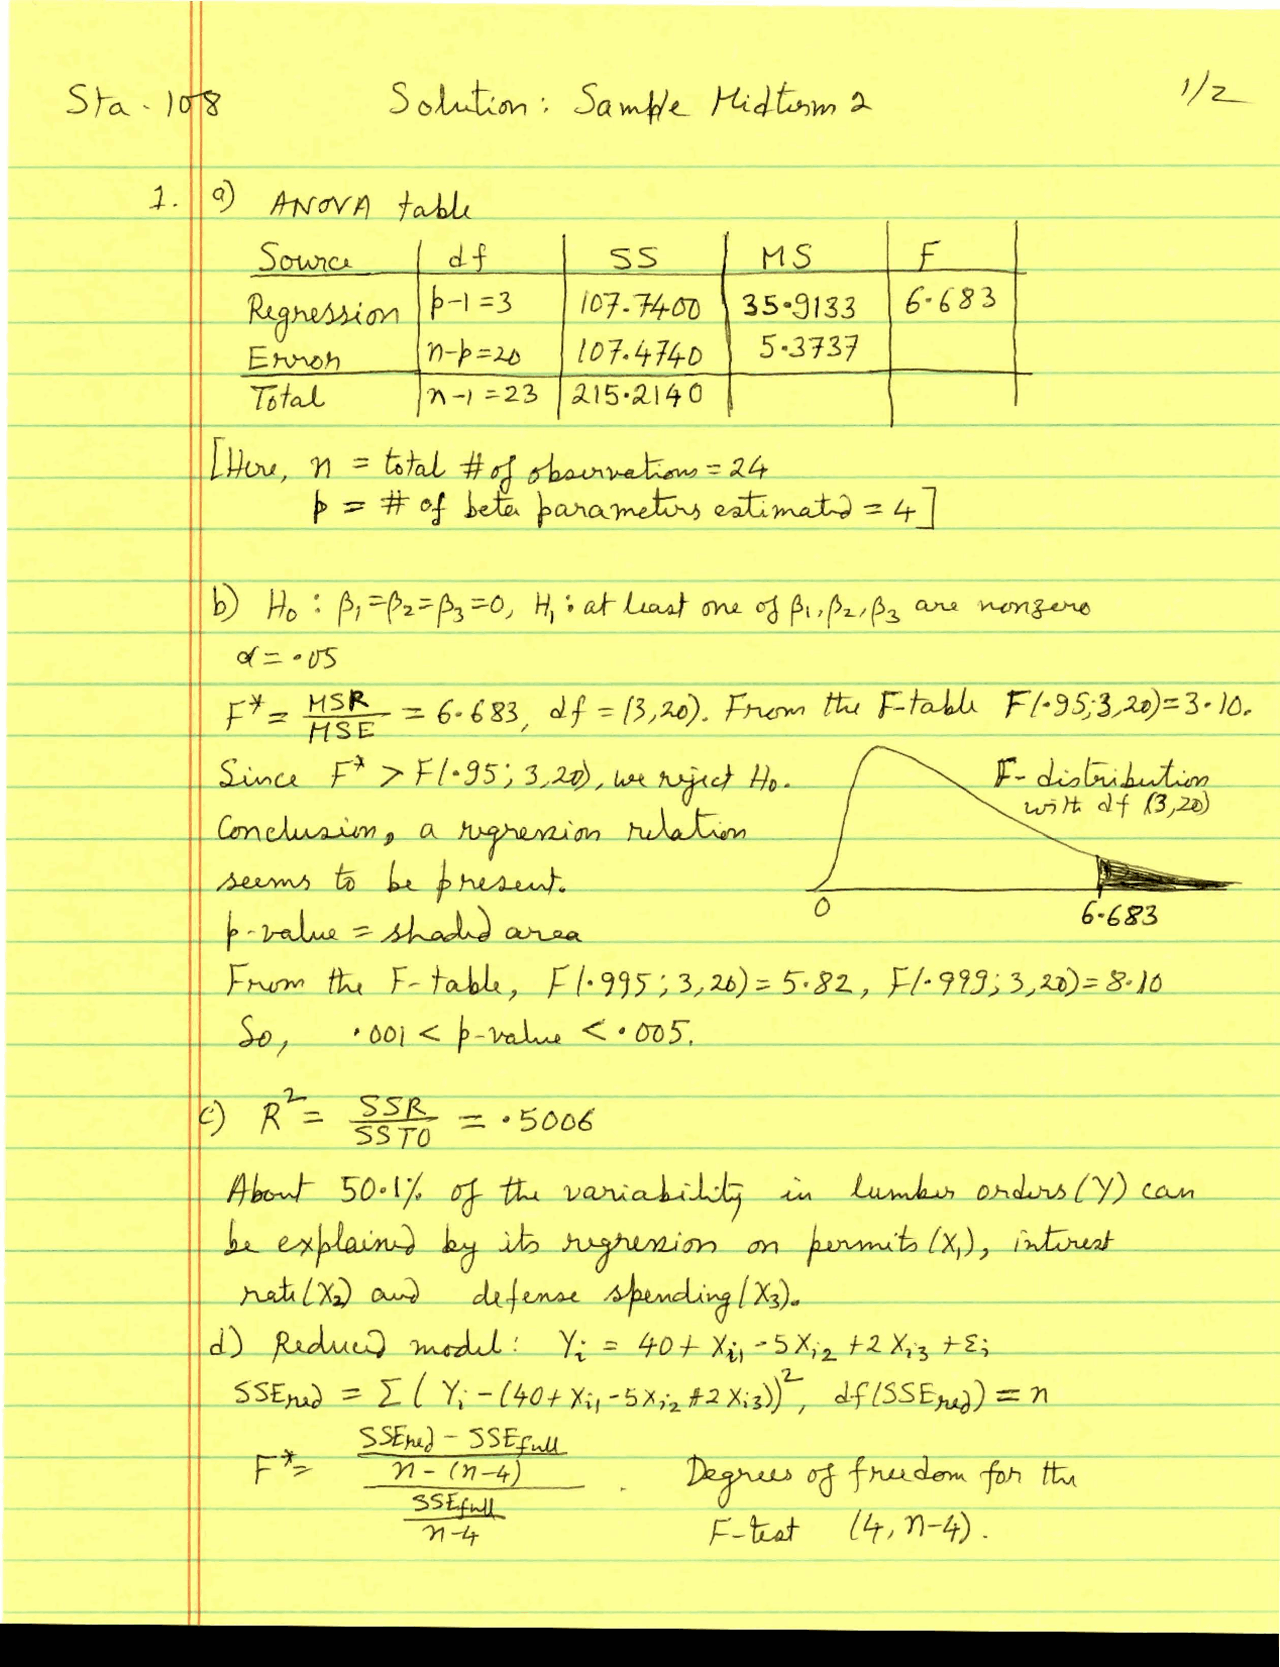 Sta-108 Solution: Sample Midterm 2 1/2
1. a) ANOVA table
Source df SS MS F
Regression p-1=3 107.7400 35.9133 6.683
Error n-p=20 107.4740 5.3737
Total n-1=23 215.2140
[Here, n = total # of observations = 24
p = # of beta parameters estimated = 4]
b) H₀: β₁=β₂=β₃=0, H₁: at least one of β₁,β₂,β₃ are nonzero
α = .05
F* = MSR/MSE = 6.683, df = (3,20). From the F-table F(.95;3,20)=3.10.
Since F* > F(.95; 3,20), we reject H₀.
Conclusion, a regression relation
seems to be present.
p-value = shaded area
F-distribution
with df (3,20)
0 6.683
From the F-table, F(.995; 3,20)=5.82, F(.999; 3,20)=8.10
So, .001 < p-value < .005.
c) R² = SSR/SSTO = .5006
About 50.1% of the variability in lumber orders (Y) can
be explained by its regression on permits (X₁), interest
rate (X₂) and defense spending (X₃).
d) Reduced model: Yᵢ = 40 + Xᵢ₁ - 5Xᵢ₂ + 2Xᵢ₃ + εᵢ
SSEred = Σ(Yᵢ - (40 + Xᵢ₁ - 5Xᵢ₂ + 2Xᵢ₃))², df(SSEred) = n
F* = ((SSEred - SSEfull)/(n-(n-4)))/(SSEfull/(n-4)). Degrees of freedom for the
F-test (4, n-4).